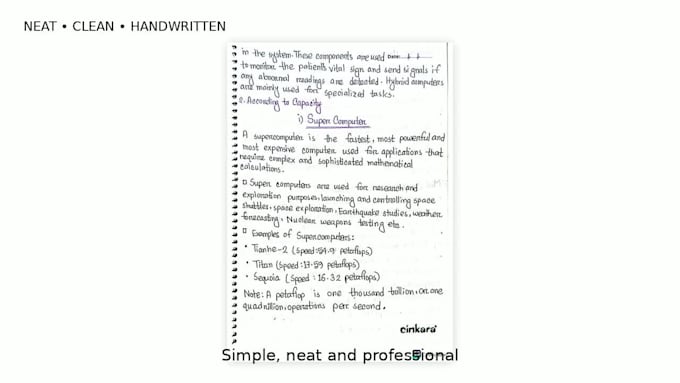 NEAT • CLEAN • HANDWRITTEN
in the system. These components are used
to monitor the patient's vital sign and send signals if
any abnormal readings are detected. Hybrid computers
are mainly used for specialized tasks.
According to Capacity
i) Super Computer
A supercomputer is the fastest, most powerful and
most expensive computer used for applications that
require complex and sophisticated mathematical
calculations.
Super computers are used for research and
exploration purposes, launching and controlling space
shuttles, space exploration, Earthquake studies, weather
forecasting, Nuclear weapons testing etc.
Examples of Supercomputers:
• Tianhe-2 (Speed: petaflops)
• Titan (Speed: petaflops)
• Sequoia (Speed: 16.32 petaflops)
Note: A petaflop is one thousand trillion, or one
quadrillion, operations per second.
cinkara
Simple, neat and professional